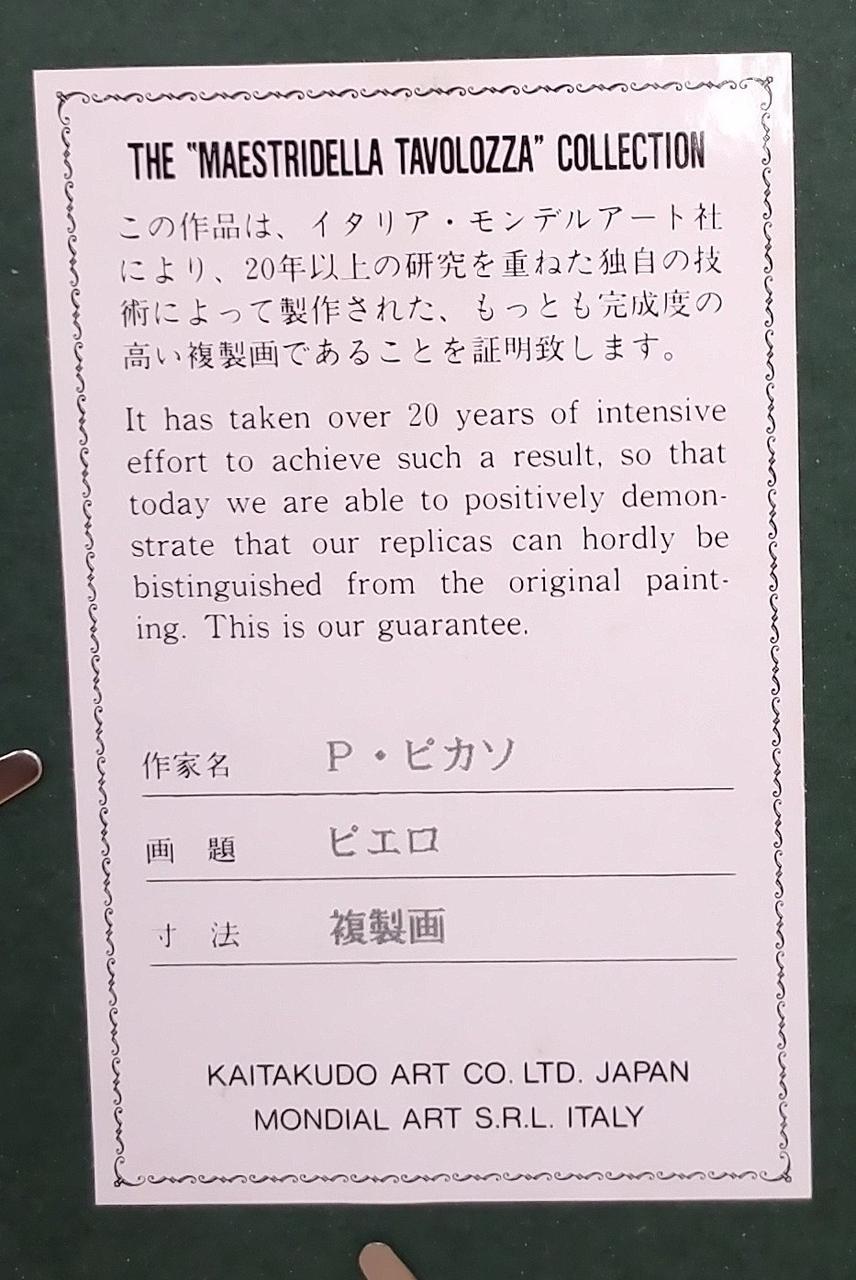 THE "MAESTRIDELLA TAVOLOZZA" COLLECTION
この作品は、イタリア・モンデルアート社
により、20年以上の研究を重ねた独自の技
術によって製作された、もっとも完成度の
高い複製画であることを証明致します。
It has taken over 20 years of intensive
effort to achieve such a result, so that
today we are able to positively demon-
strate that our replicas can hordly be
bistinguished from the original paint-
ing. This is our guarantee.
作家名 P・ピカソ
画 題 ピエロ
寸 法 複製画
KAITAKUDO ART CO. LTD. JAPAN
MONDIAL ART S.R.L. ITALY